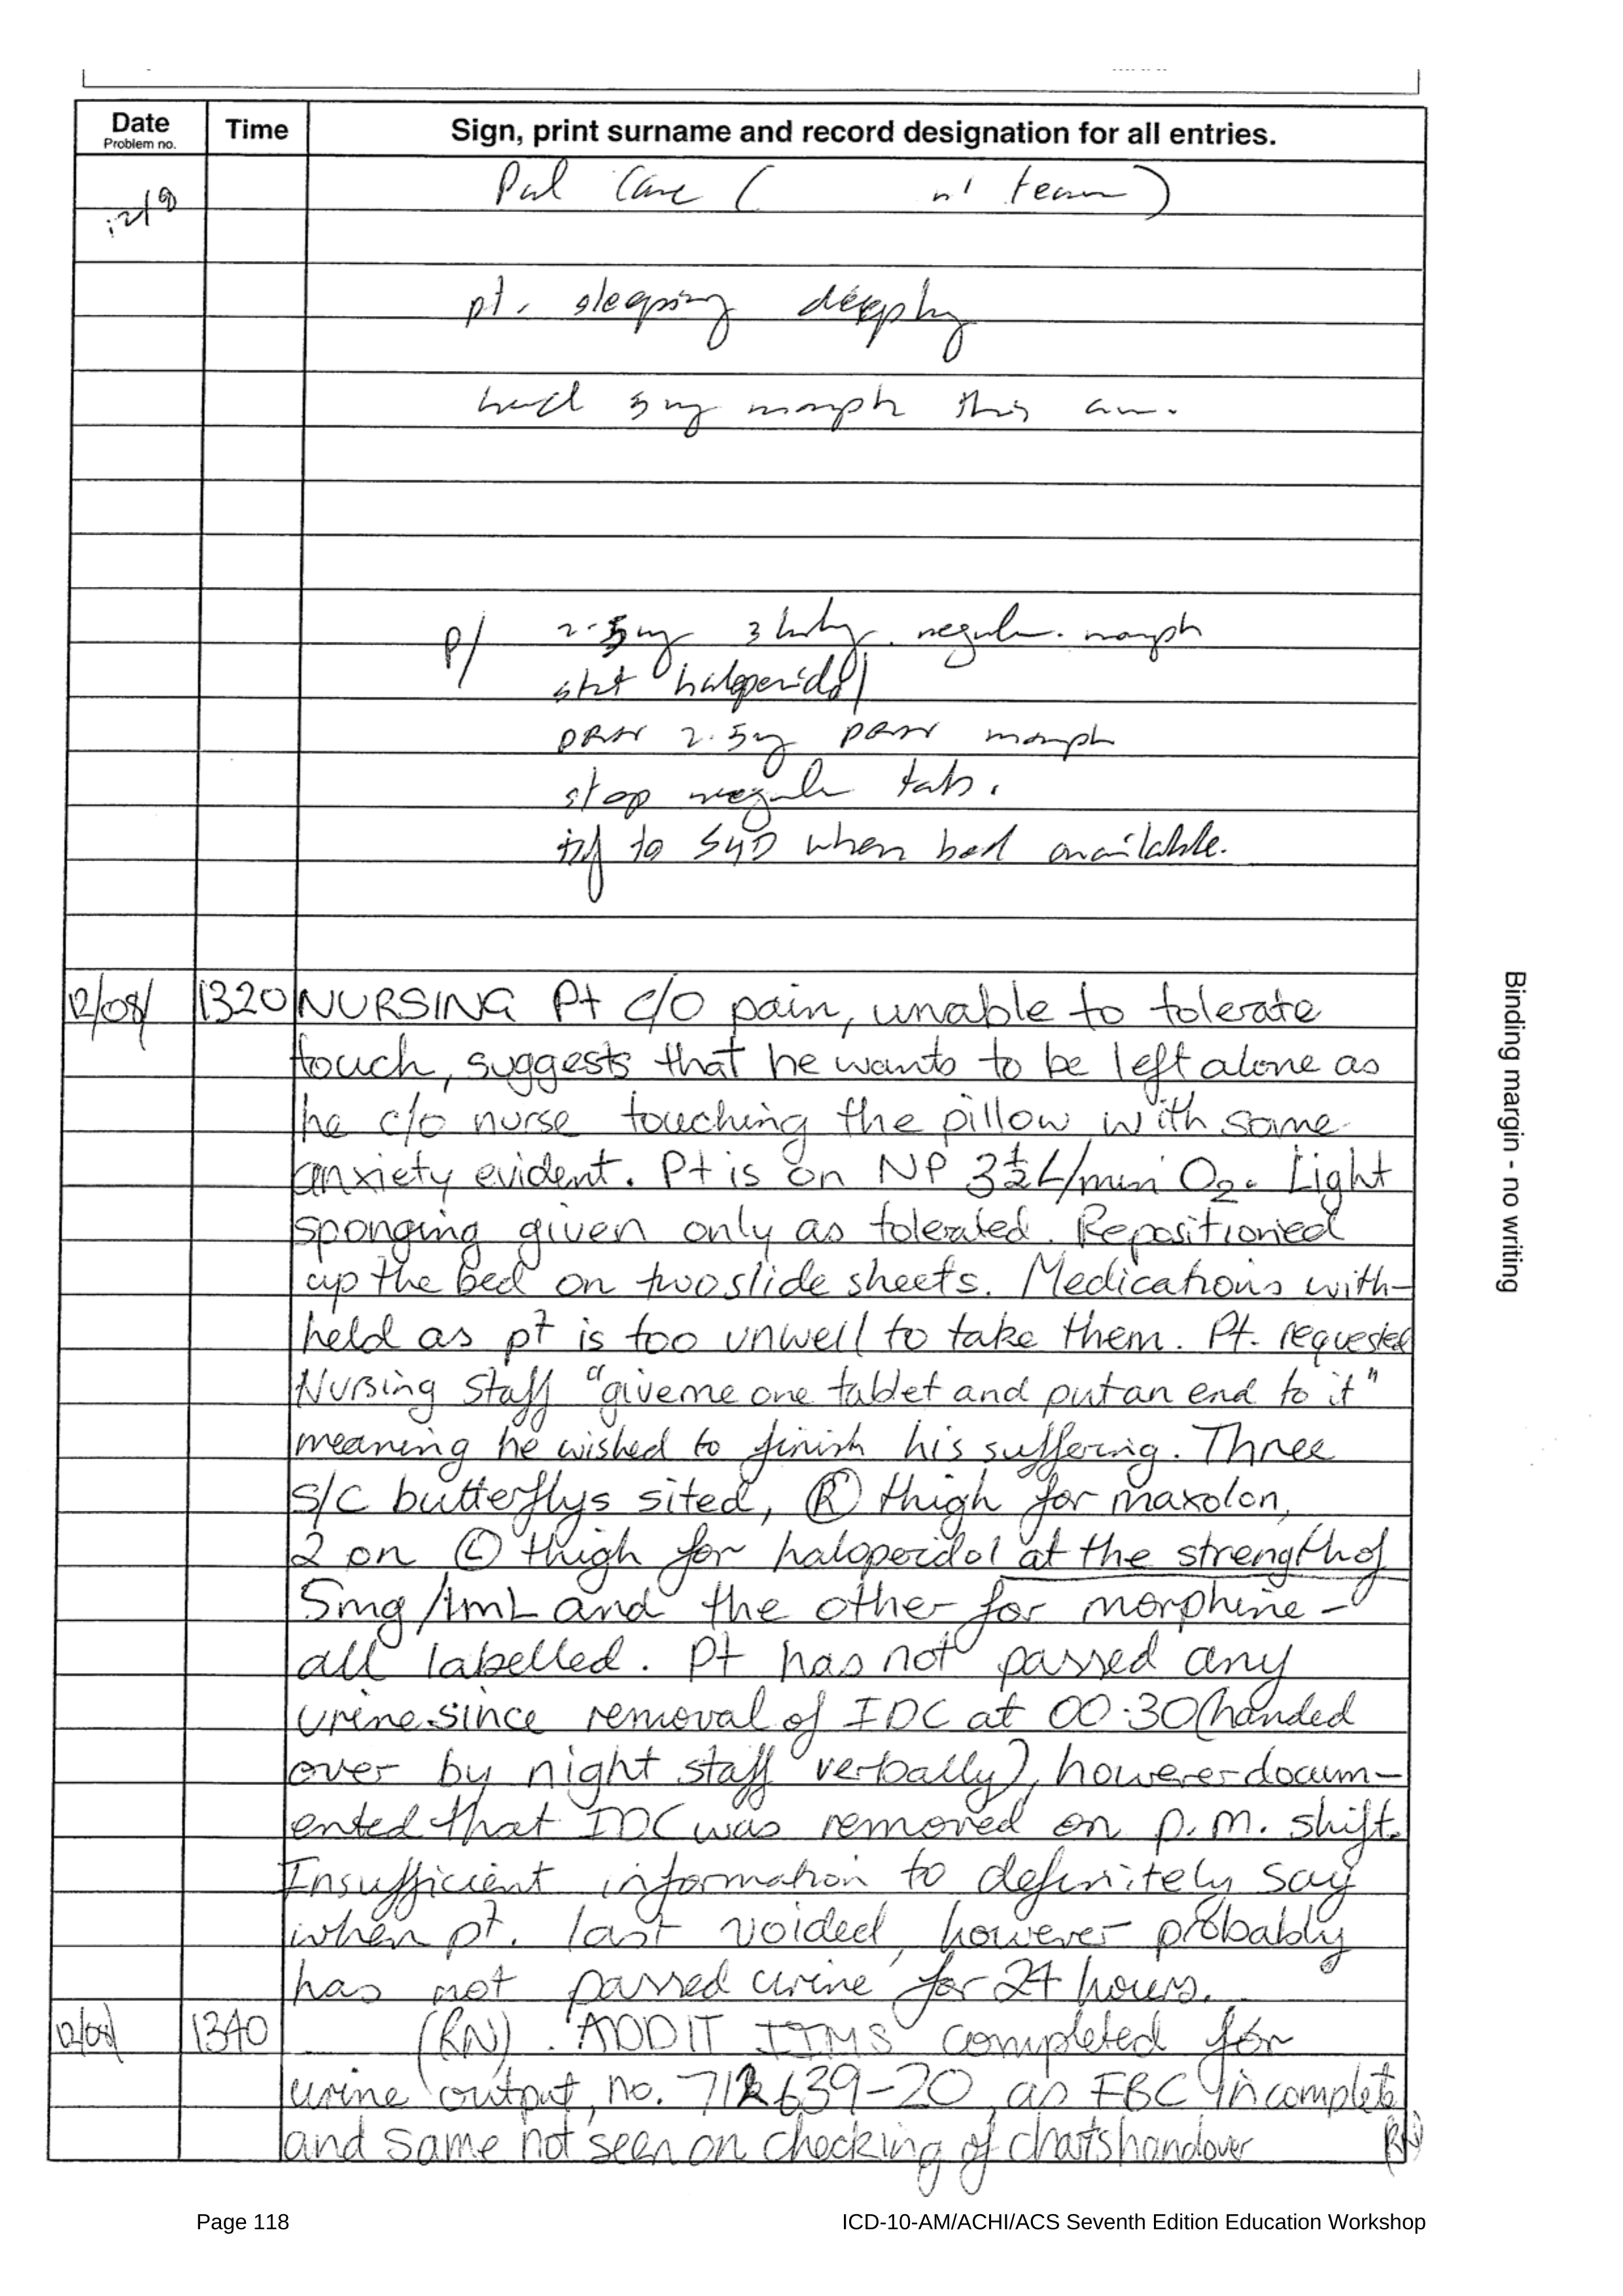 Date
Problem no.
Time
Sign, print surname and record designation for all entries.
Pal Care ( n' team)
pt. sleeping deeply
had 5mg morph this am.
P/ 2.5mg 3 hrly. regular. morph
stat haloperidol
PRN 2.5mg PRN morph
stop regular tabs.
t/f to S4D when bed available.
12/08/ 1320 NURSING Pt c/o pain, unable to tolerate
touch, suggests that he wants to be left alone as
he c/o nurse touching the pillow with some
anxiety evident. Pt is on NP 3½L/min O2. Light
sponging given only as tolerated. Repositioned
up the bed on two slide sheets. Medications with-
held as pt is too unwell to take them. Pt. requested
Nursing Staff "give me one tablet and put an end to it"
meaning he wished to finish his suffering. Three
s/c butterflys sited, Ⓡ thigh for maxolon,
2 on Ⓛ thigh for haloperidol at the strength of
5mg/1mL and the other for morphine -
all labelled. Pt has not passed any
urine since removal of IDC at 00.30 (handed
over by night staff verbally), however docum-
ented that IDC was removed on p.m. shift.
Insufficient information to definitely say
when pt. last voided, however probably
has not passed urine for 24 hours.
12/08/ 1340 (RN). ADDIT IIMS completed for
urine output, no. 712639-20, as FBC incomplete
and same not seen on checking of charts handover (RN)
Binding margin - no writing
Page 118
ICD-10-AM/ACHI/ACS Seventh Edition Education Workshop